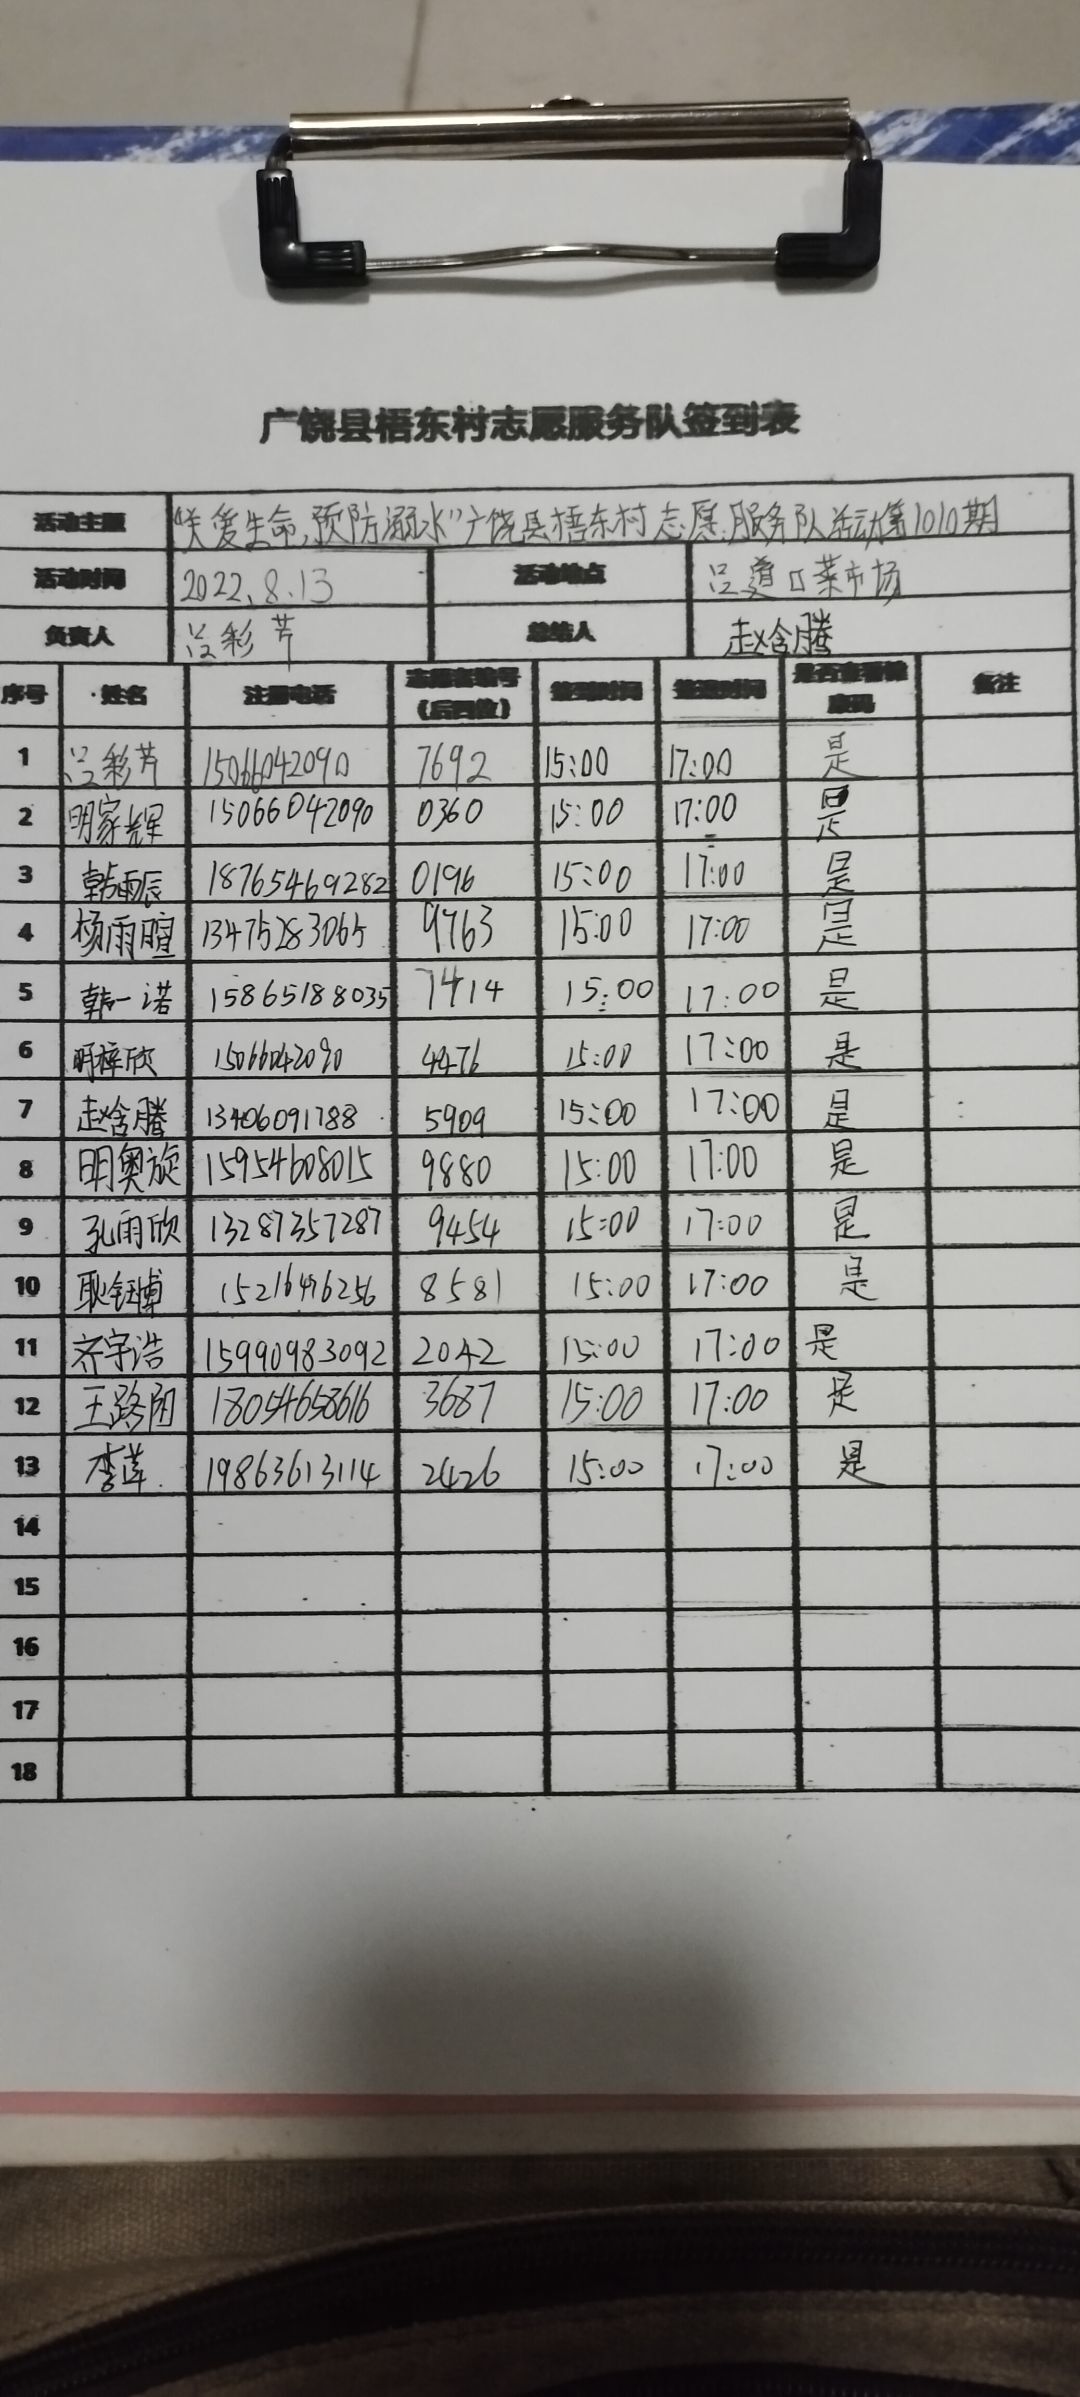 广饶县梧东村志愿服务队签到表
活动主题 "关爱生命,预防溺水"广饶县梧东村志愿服务队活动第1010期
活动时间 2022.8.13 活动地点 吕道口菜市场
负责人 吕彩芳 总结人 赵含腾
序号 姓名 注册电话 志愿者编号(后四位) 签到时间 签退时间 是否查看健康码 备注
1 吕彩芳 15066042090 7692 15:00 17:00 是
2 明家辉 15066042090 0360 15:00 17:00 是
3 韩雨辰 18765469282 0196 15:00 17:00 是
4 杨雨暄 13475283065 9763 15:00 17:00 是
5 韩一诺 15865188035 7414 15:00 17:00 是
6 明梓欣 15066042090 4476 15:00 17:00 是
7 赵含腾 13406091788 5909 15:00 17:00 是
8 明奥旋 15954608015 9880 15:00 17:00 是
9 孔雨欣 13287357287 9454 15:00 17:00 是
10 耿钰博 8581 15:00 17:00 是
11 齐宇浩 15990983092 2042 15:00 17:00 是
12 王路 18054658616 3687 15:00 17:00 是
13 李莲 19863613114 2426 15:00 17:00 是
14
15
16
17
18